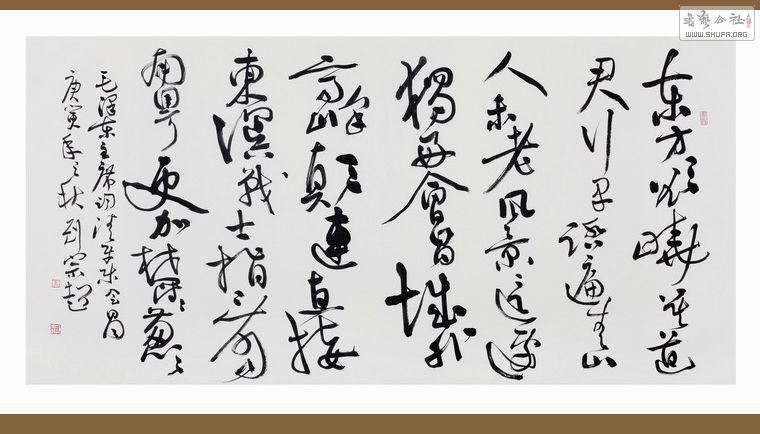 东方欲曉莫道
君行早踏遍青山
人未老風景这邊
獨好會昌城外
高峰顛連直接
東溟戰士指看
南粤更加郁〻葱〻
毛澤东主席词清平乐会昌
庚寅年之秋刘宗超
书艺公社
WWW.SHUFA.ORG